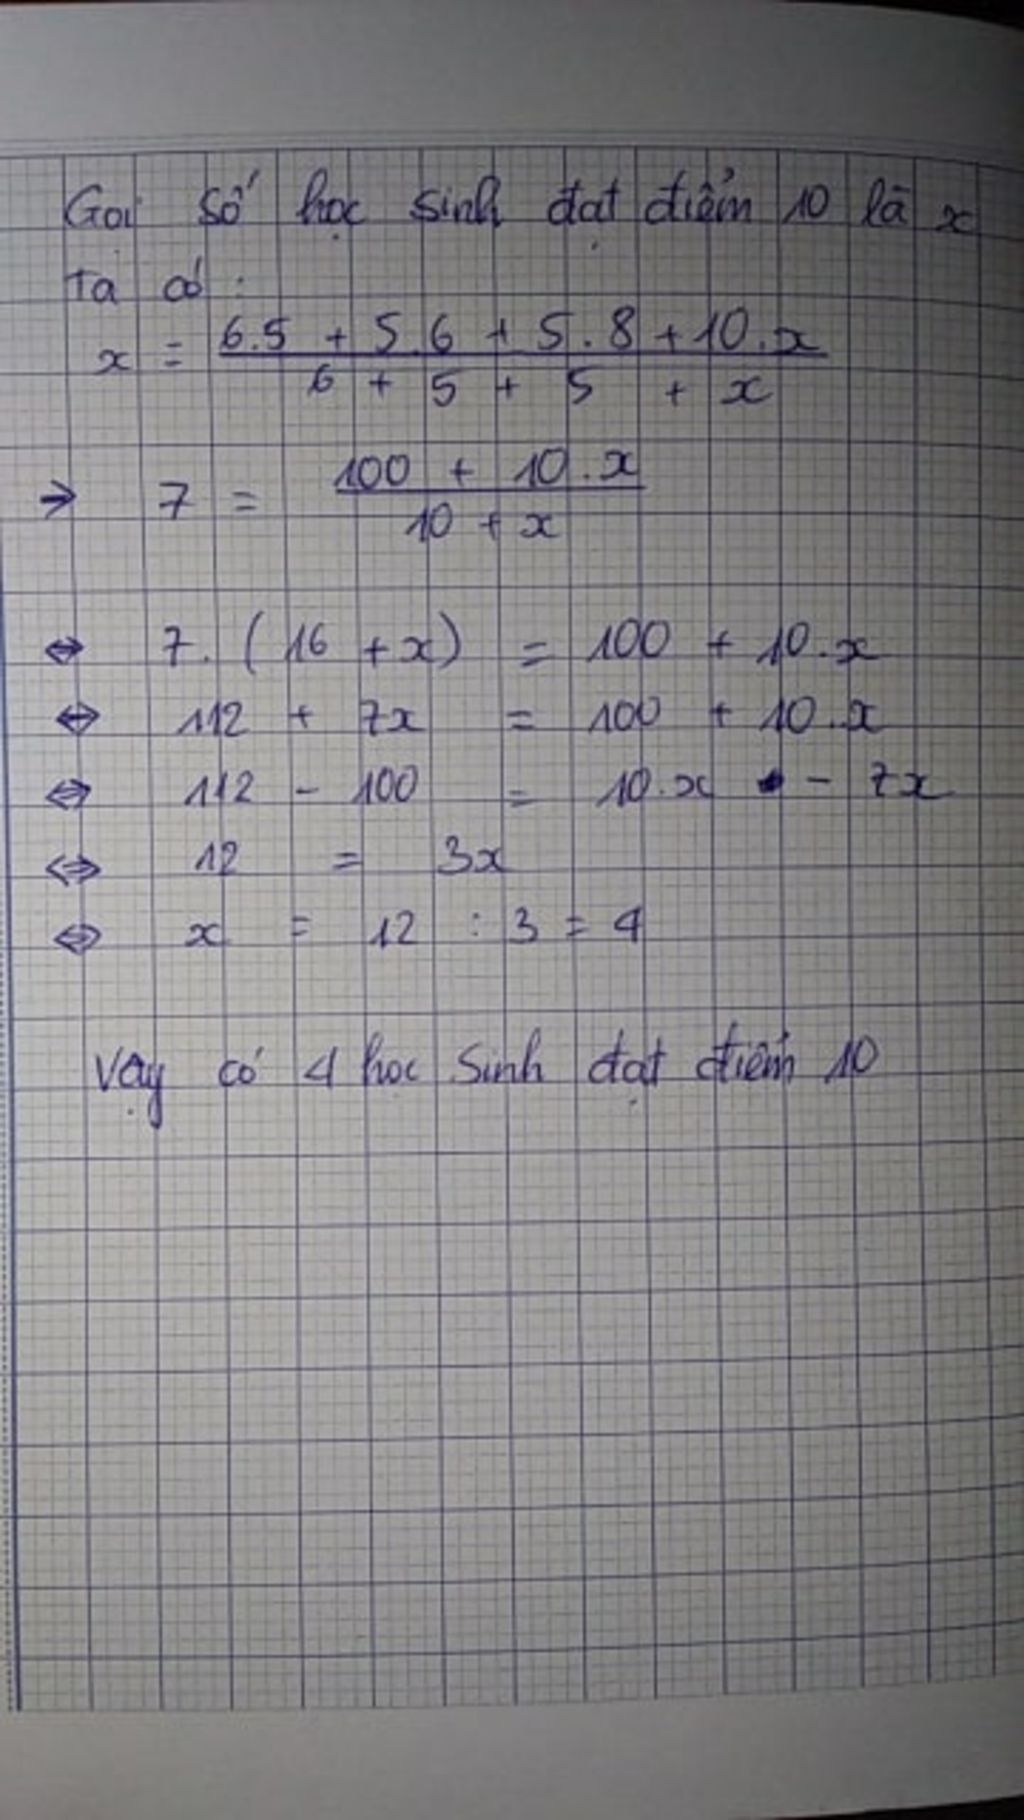 Gọi số học sinh đạt điểm 10 là x
Ta có :
x = (6.5 + 5.6 + 5.8 + 10.x) / (6 + 5 + 5 + x)
→ 7 = (100 + 10.x) / (10 + x)
⇔ 7.(16 + x) = 100 + 10.x
⇔ 112 + 7x = 100 + 10.x
⇔ 112 - 100 = 10.x - 7x
⇔ 12 = 3x
⇔ x = 12 : 3 = 4
Vậy có 4 học sinh đạt điểm 10